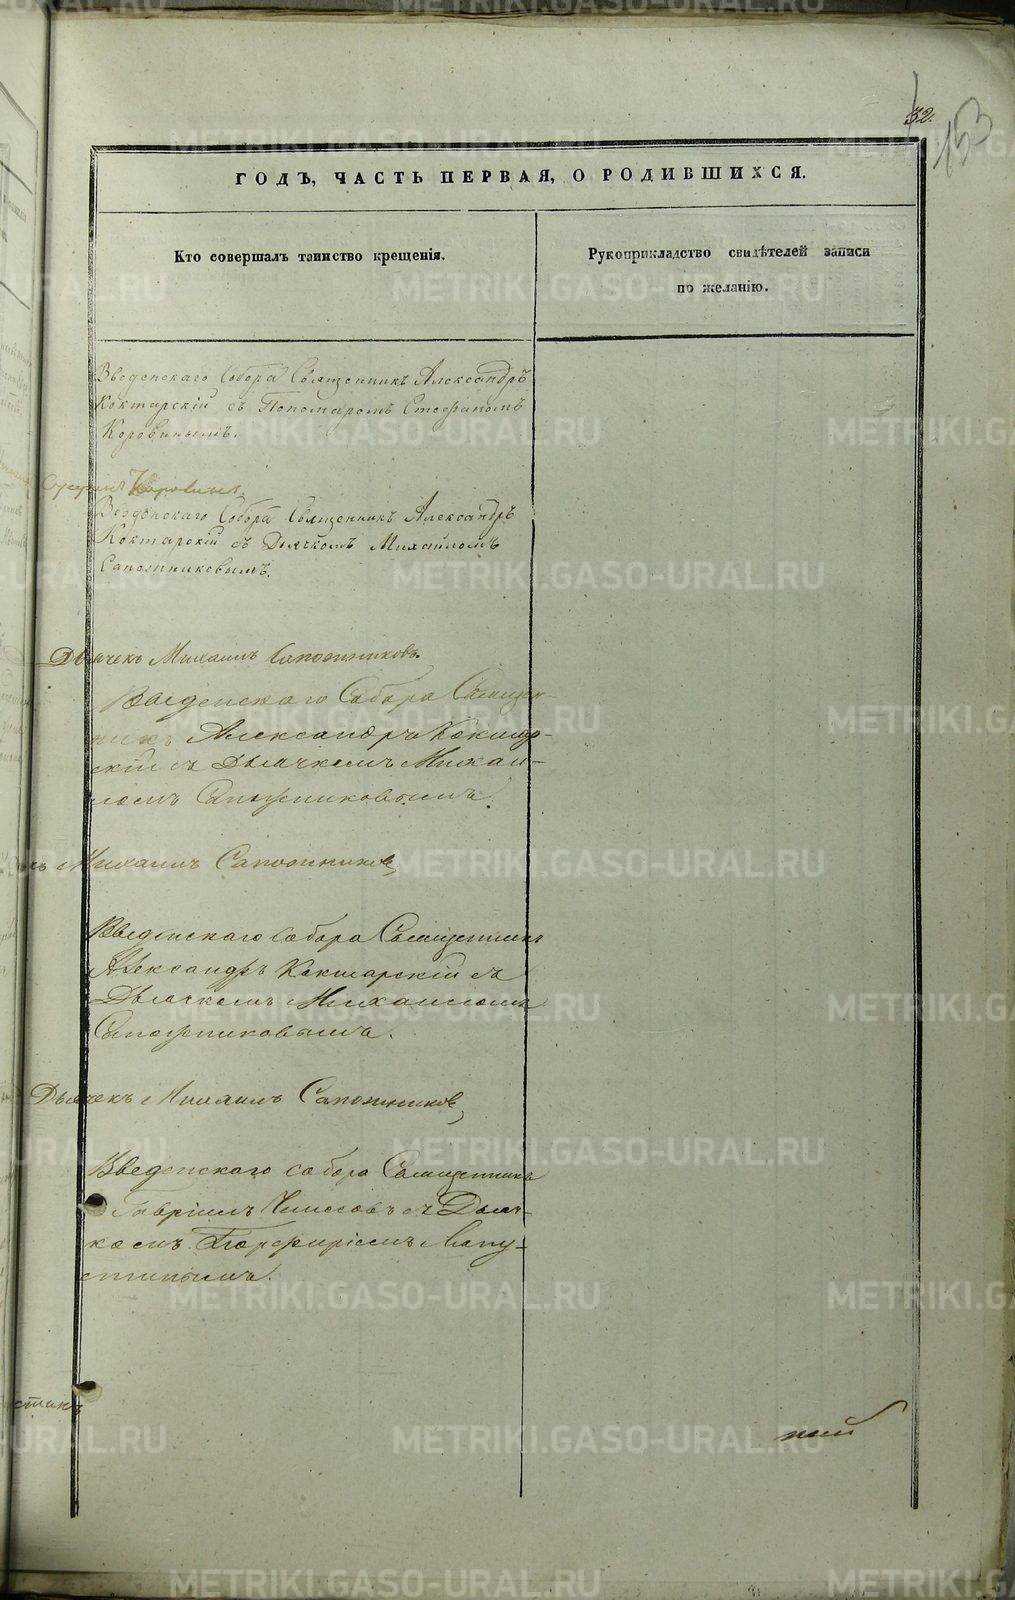 32.
153
ГОДЪ, ЧАСТЬ ПЕРВАЯ, О РОДИВШИХСЯ.
Кто совершалъ таинство крещенія.
Рукоприкладство свидѣтелей записи
по желанію.
Введенскаго Собора Священникъ Александръ
Кокшарскій съ Пономаромъ Стефаномъ
Коровинымъ.
Коровинъ
Введенскаго Собора Священникъ Александръ
Кокшарскій съ Дьячкомъ Михаиломъ
Сапожниковымъ.
Дьячекъ Михаилъ Сапожниковъ.
Введенскаго Собора Священ-
никъ Александръ Кокшар-
скій съ Дьячкомъ Михаи-
ломъ Сапожниковымъ.
Михаилъ Сапожниковъ
Введенскаго собора Священникъ
Александръ Кокшарскій съ
Дьячкомъ Михаиломъ
Сапожниковымъ.
Дьячекъ Михаилъ Сапожниковъ
Введенскаго собора Священникъ
Гавріилъ съ Дьяч-
комъ Порфиріемъ Лапу-
стинымъ.
стинъ
METRIKI.GASO-URAL.RU